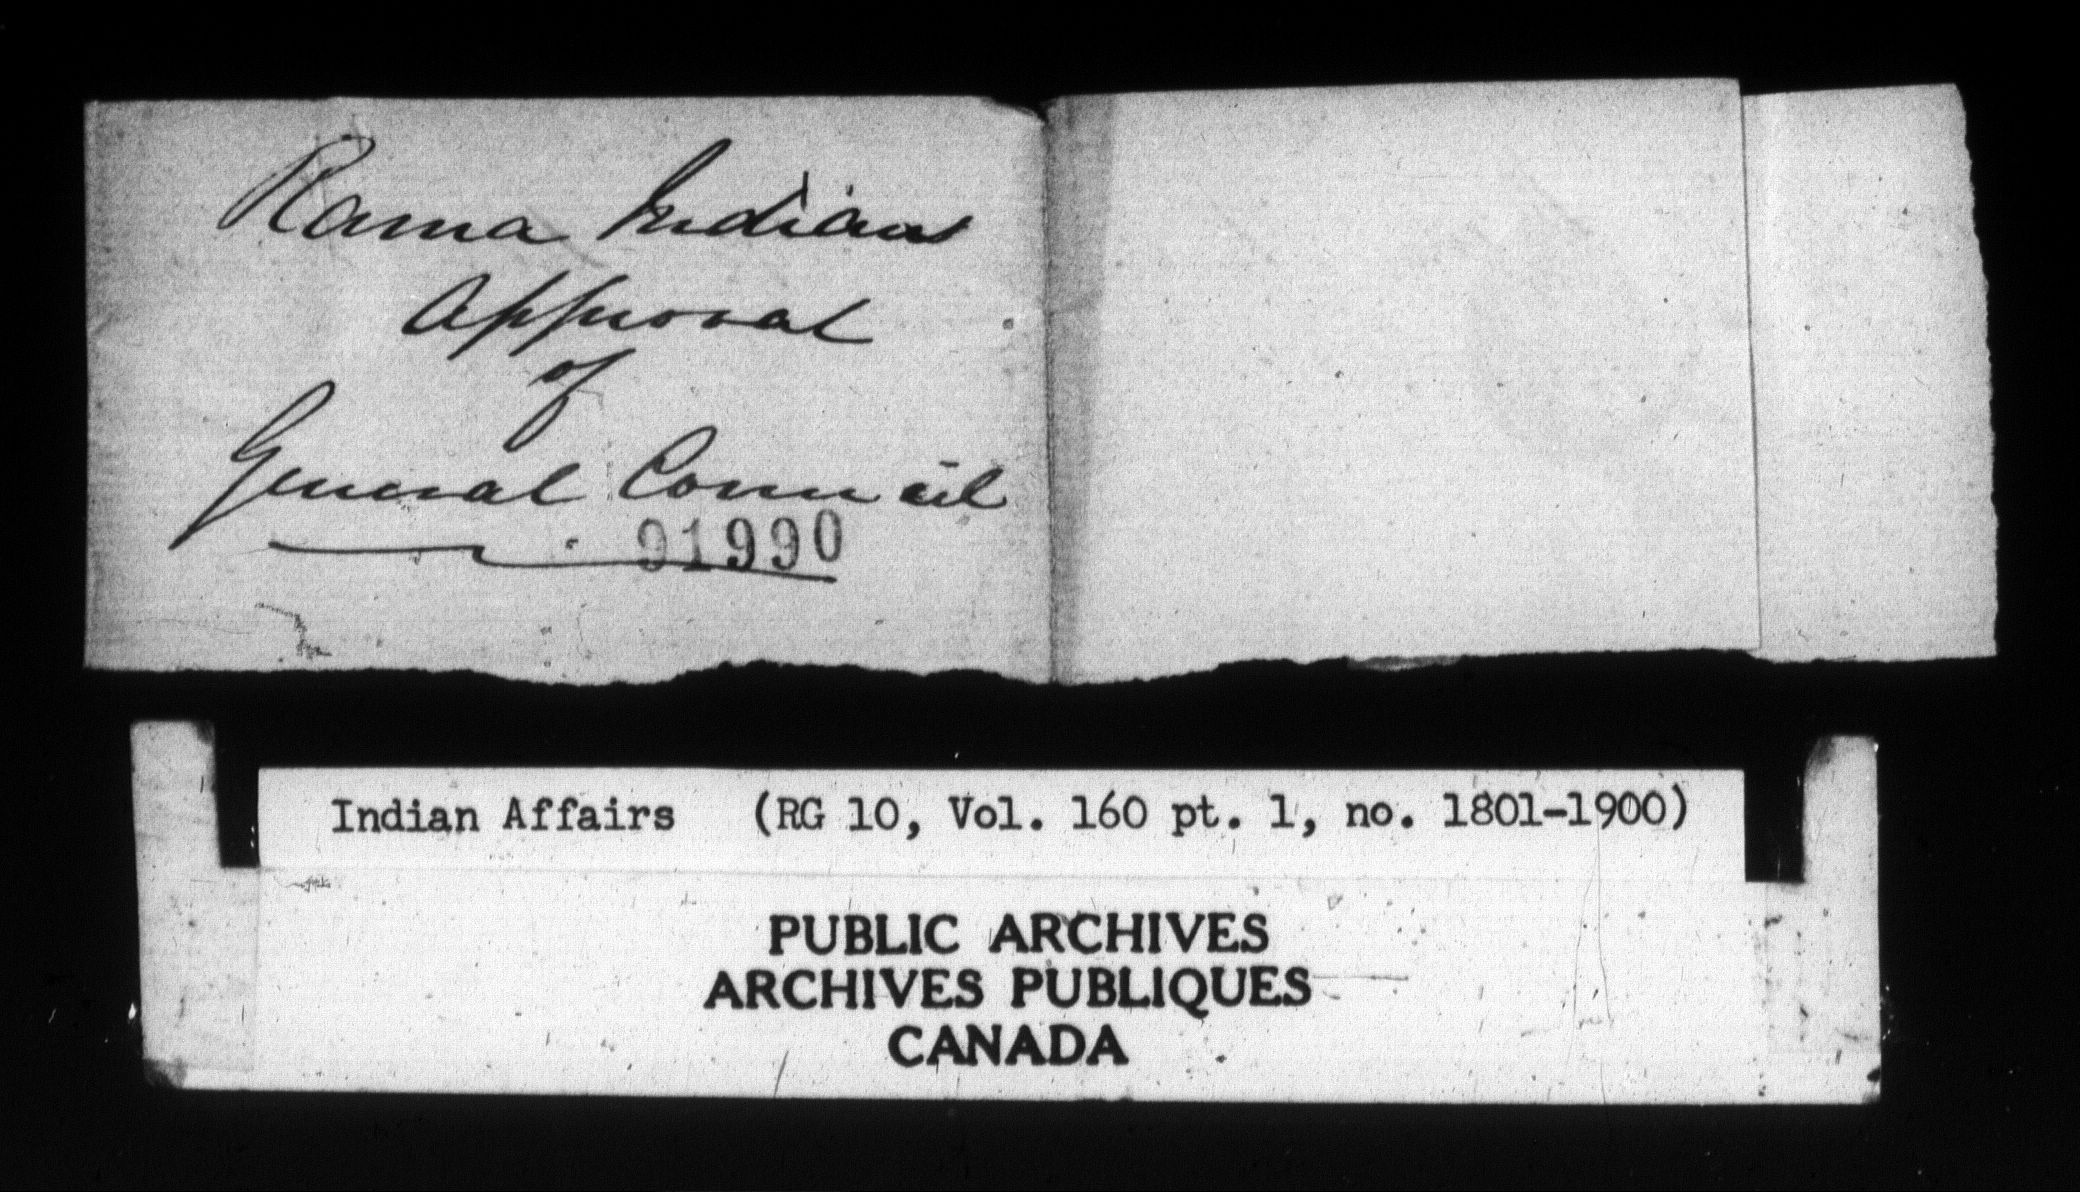 Rama Indians
Approval
of
General Council
91990
Indian Affairs (RG 10, Vol. 160 pt. 1, no. 1801-1900)
PUBLIC ARCHIVES
ARCHIVES PUBLIQUES
CANADA